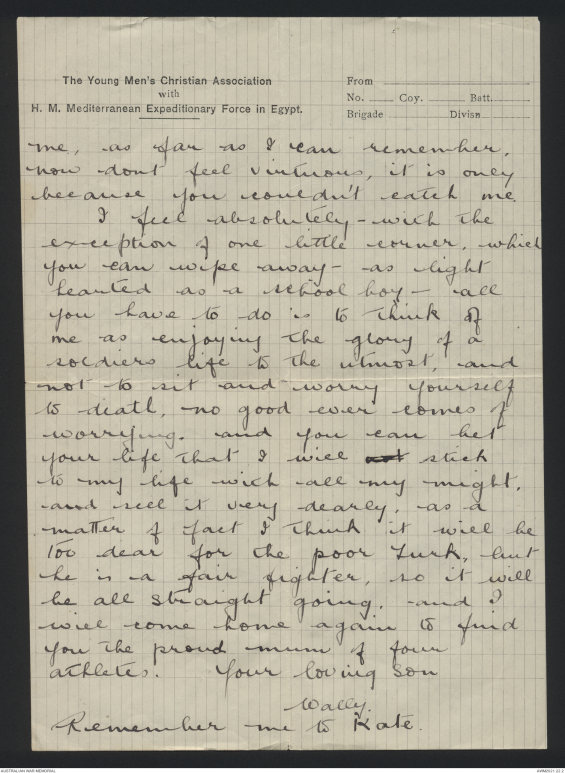 The Young Men's Christian Association
with
H. M. Mediterranean Expeditionary Force in Egypt.
From
No. Coy. Batt.
Brigade Divisn
me, as far as I can remember,
now dont feel virtuous, it is only
because you couldn't catch me.
I feel absolutely - with the
exception of one little corner, which
you can wipe away - as light
hearted as a school boy - all
you have to do is to think of
me as enjoying the glory of a
soldiers life to the utmost, and
not to sit and worry yourself
to death, no good ever comes of
worrying. and you can bet
your life that I will not stick
to my life with all my might,
and sell it very dearly, as a
matter of fact I think it will be
too dear for the poor Turk, but
he is a fair fighter, so it will
be all straight going, and I
will come home again to find
you the proud mum of four
athletes. Your loving son
Wally.
Remember me to Kate.
AUSTRALIAN WAR MEMORIAL